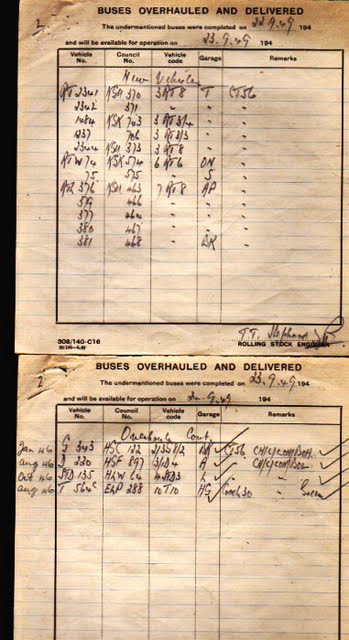 2
BUSES OVERHAULED AND DELIVERED
The undermentioned buses were completed on 22.9.49 194
and will be available for operation on 23.9.49 194
Vehicle No. Council No. Vehicle code Garage Remarks
New Vehicles
RT 2341 KGU 370 3RT8 T CT56
2342 371 " " "
1484 KGK 743 3RT3/4 " "
1237 706 3RT3/3 " "
2344 KGU 373 3RT8 " "
RTW 74 KGK 574 6RT6 ON "
75 575 " S "
RTL 376 KGU 463 7RT8 AP "
379 466 " " "
377 464 " " "
380 467 " " "
381 468 " BK "
308/140-C16
ROLLING STOCK ENGINEER
2
BUSES OVERHAULED AND DELIVERED
The undermentioned buses were completed on 23.9.49 194
and will be available for operation on 24.9.49 194
Vehicle No. Council No. Vehicle code Garage Remarks
Overhauls Cont.
Jan 46 G 343 HGC 122
Aug 46 220 HGF 897 A
Oct 46 STD 135 HLW 64 4STD3 L
Aug 46 T 564 ELP 288 10T10 HG Coach 30 " Green